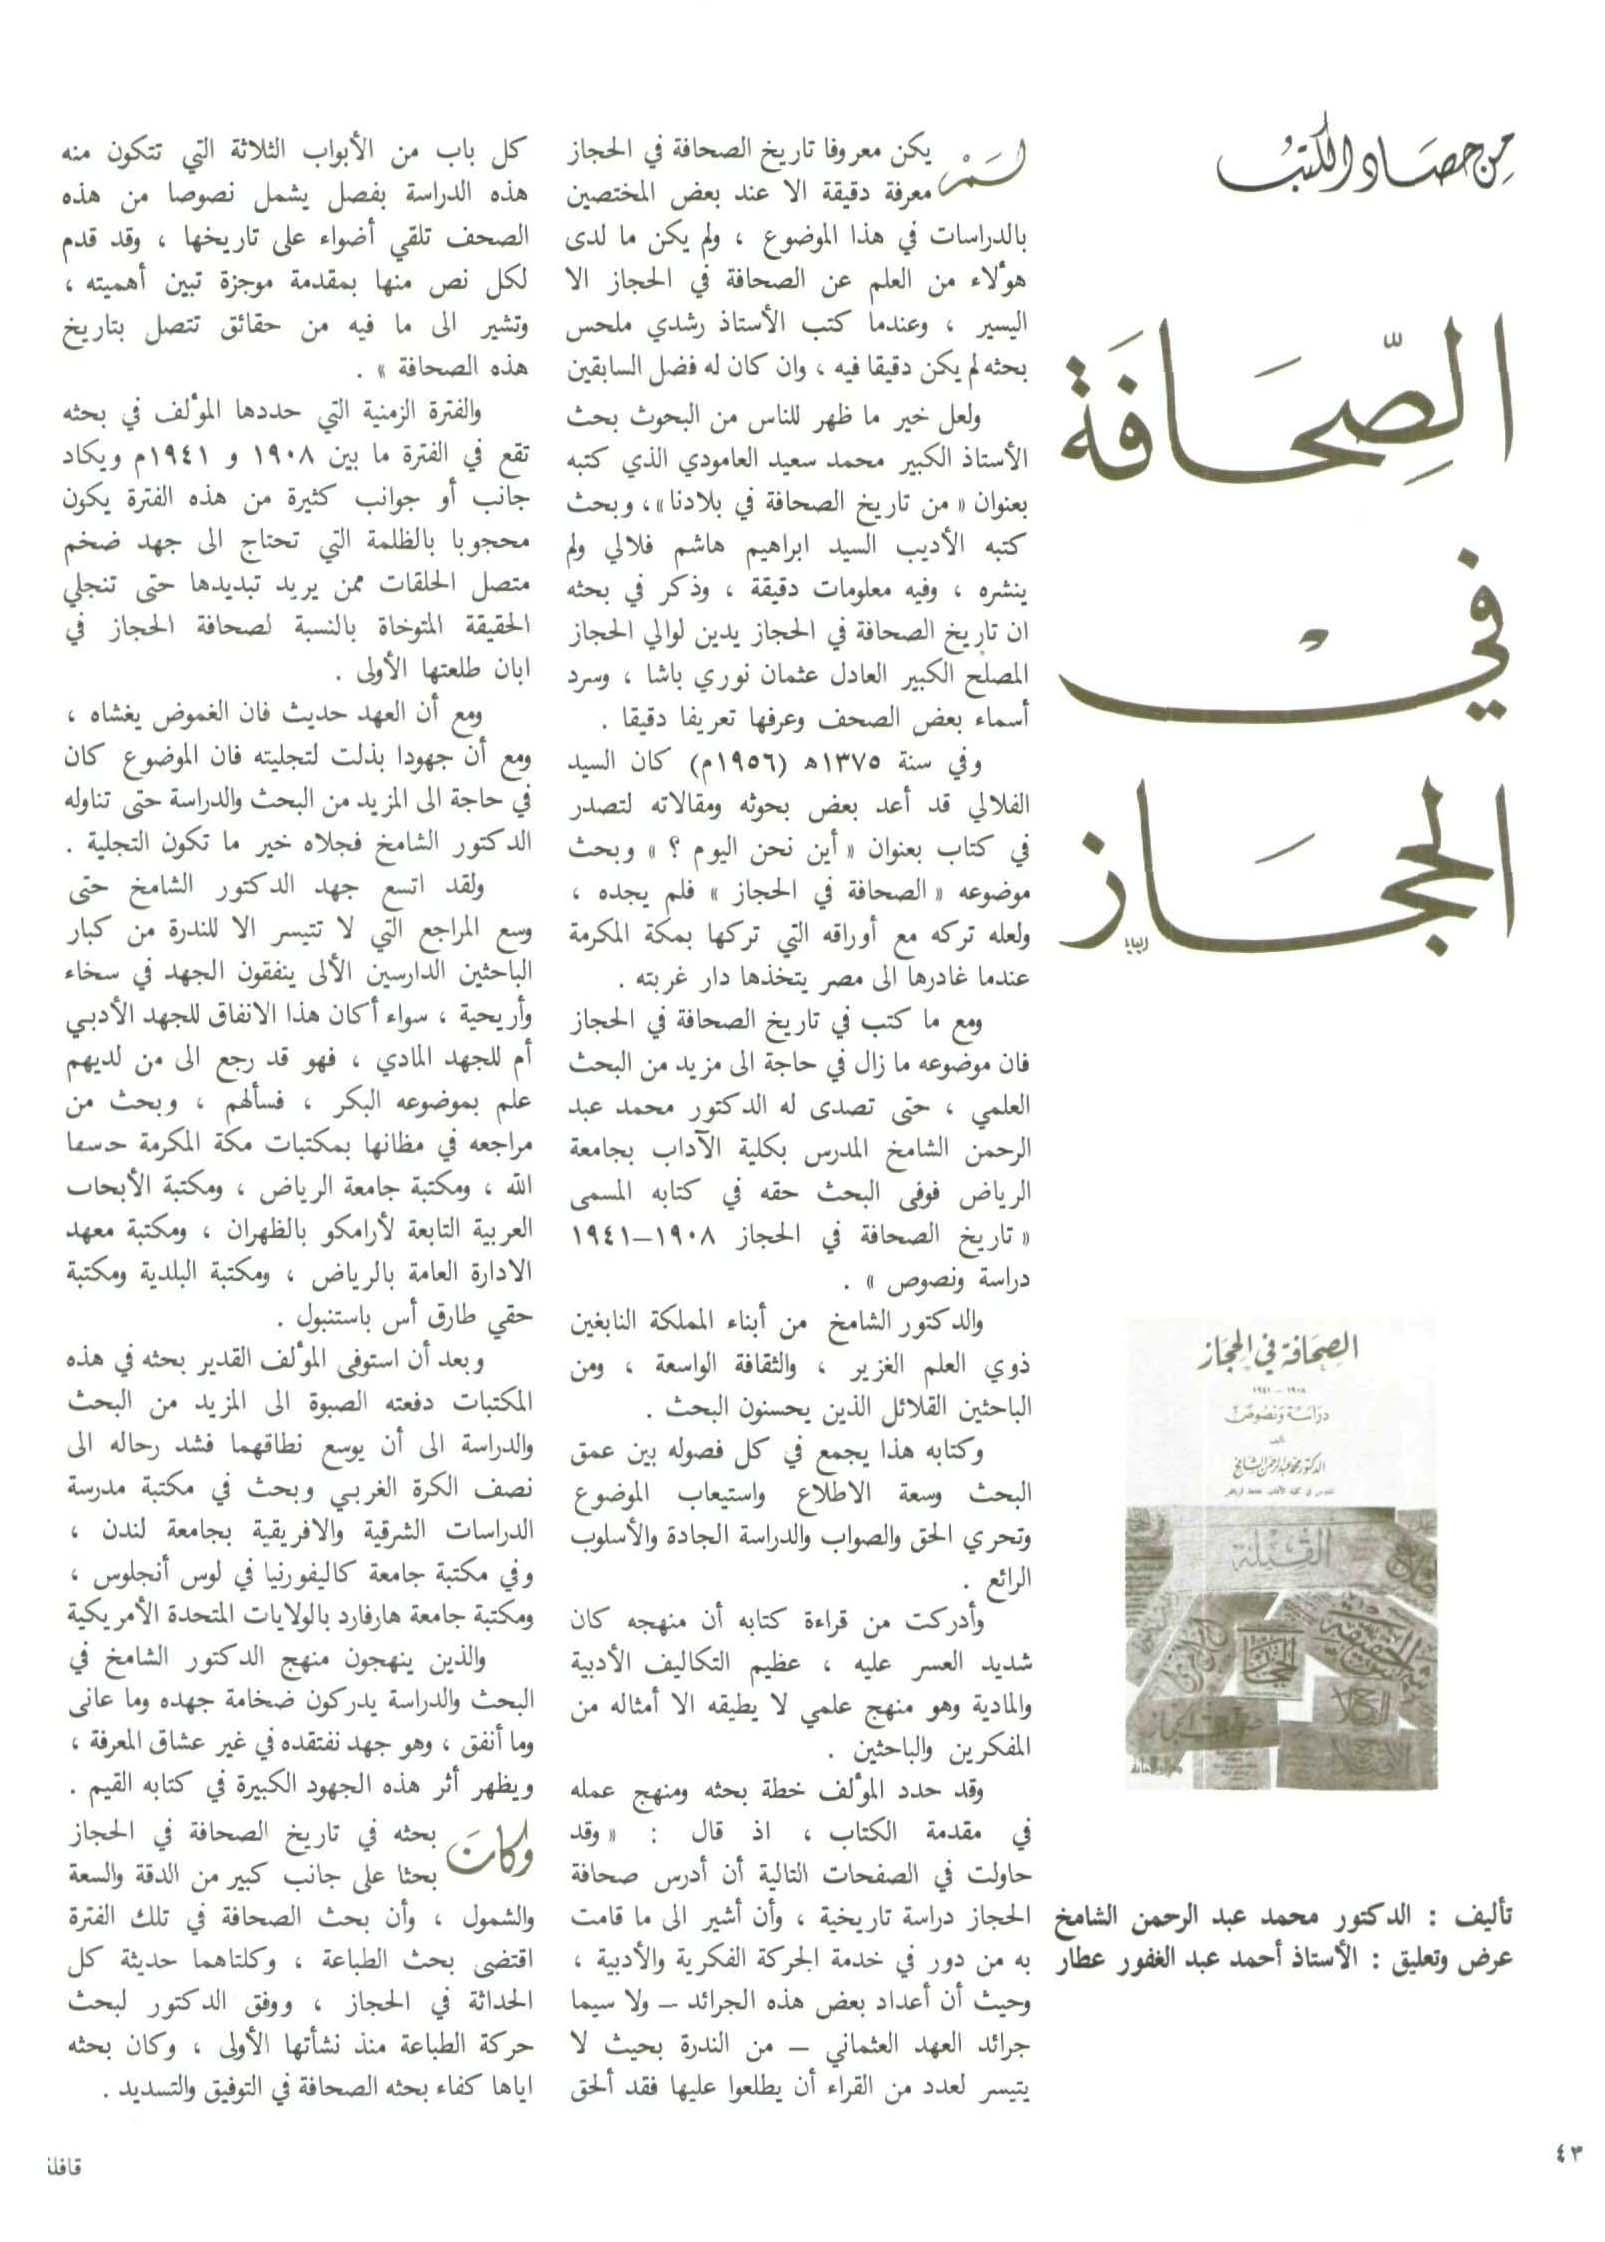 من حصاد الكتب
الصّحَافَة
في
الحجَاز
الصحافة في الحجاز
١٩٠٨ – ١٩٤١
دراسة ونصوص
تأليف
الدكتور محمد عبد الرحمن الشامخ
القبلة
تأليف : الدكتور محمد عبد الرحمن الشامخ
عرض وتعليق : الأستاذ أحمد عبد الغفور عطار
لَمْ يكن معروفا تاريخ الصحافة في الحجاز
معرفة دقيقة الا عند بعض المختصين
بالدراسات في هذا الموضوع ، ولم يكن ما لدى
هؤلاء من العلم عن الصحافة في الحجاز الا
اليسير ، وعندما كتب الأستاذ رشدي ملحس
بحثه لم يكن دقيقا فيه ، وان كان له فضل السابقين
ولعل خير ما ظهر للناس من البحوث بحث
الأستاذ الكبير محمد سعيد العامودي الذي كتبه
بعنوان « من تاريخ الصحافة في بلادنا »، وبحث
كتبه الأديب السيد ابراهيم هاشم فلالي ولم
ينشره ، وفيه معلومات دقيقة ، وذكر في بحثه
ان تاريخ الصحافة في الحجاز يدين لوالي الحجاز
المصلح الكبير العادل عثمان نوري باشا ، وسرد
أسماء بعض الصحف وعرفها تعريفا دقيقا .
وفي سنة ١٣٧٥ه (١٩٥٦م) كان السيد
الفلالي قد أعد بعض بحوثه ومقالاته لتصدر
في كتاب بعنوان « أين نحن اليوم ؟ » وبحث
موضوعه « الصحافة في الحجاز » فلم يجده ،
ولعله تركه مع أوراقه التي تركها بمكة المكرمة
عندما غادرها الى مصر يتخذها دار غربته .
ومع ما كتب في تاريخ الصحافة في الحجاز
فان موضوعه ما زال في حاجة الى مزيد من البحث
العلمي ، حتى تصدى له الدكتور محمد عبد
الرحمن الشامخ المدرس بكلية الآداب بجامعة
الرياض فوفى البحث حقه في كتابه المسمى
« تاريخ الصحافة في الحجاز ١٩٠٨–١٩٤١
دراسة ونصوص » .
والدكتور الشامخ من أبناء المملكة النابغين
ذوي العلم الغزير ، والثقافة الواسعة ، ومن
الباحثين القلائل الذين يحسنون البحث .
وكتابه هذا يجمع في كل فصوله بين عمق
البحث وسعة الاطلاع واستيعاب الموضوع
وتحري الحق والصواب والدراسة الجادة والأسلوب
الرائع .
وأدركت من قراءة كتابه أن منهجه كان
شديد العسر عليه ، عظيم التكاليف الأدبية
والمادية وهو منهج علمي لا يطيقه الا أمثاله من
المفكرين والباحثين .
وقد حدد المؤلف خطة بحثه ومنهج عمله
في مقدمة الكتاب ، اذ قال : « وقد
حاولت في الصفحات التالية أن أدرس صحافة
الحجاز دراسة تاريخية ، وأن أشير الى ما قامت
به من دور في خدمة الحركة الفكرية والأدبية ،
وحيث أن أعداد بعض هذه الجرائد – ولا سيما
جرائد العهد العثماني – من الندرة بحيث لا
يتيسر لعدد من القراء أن يطلعوا عليها فقد ألحق
كل باب من الأبواب الثلاثة التي تتكون منه
هذه الدراسة بفصل يشمل نصوصا من هذه
الصحف تلقي أضواء على تاريخها ، وقد قدم
لكل نص منها بمقدمة موجزة تبين أهميته ،
وتشير الى ما فيه من حقائق تتصل بتاريخ
هذه الصحافة » .
والفترة الزمنية التي حددها المؤلف في بحثه
تقع في الفترة ما بين ١٩٠٨ و ١٩٤١م ويكاد
جانب أو جوانب كثيرة من هذه الفترة يكون
محجوبا بالظلمة التي تحتاج الى جهد ضخم
متصل الحلقات ممن يريد تبديدها حتى تنجلي
الحقيقة المتوخاة بالنسبة لصحافة الحجاز في
ابان طلعتها الأولى .
ومع أن العهد حديث فان الغموض يغشاه ،
ومع أن جهودا بذلت لتجليته فان الموضوع كان
في حاجة الى المزيد من البحث والدراسة حتى تناوله
الدكتور الشامخ فجلاه خير ما تكون التجلية .
ولقد اتسع جهد الدكتور الشامخ حتى
وسع المراجع التي لا تتيسر الا للندرة من كبار
الباحثين الدارسين الألى ينفقون الجهد في سخاء
وأريحية ، سواء أكان هذا الانفاق للجهد الأدبي
أم للجهد المادي ، فهو قد رجع الى من لديهم
علم بموضوعه البكر ، فسألهم ، وبحث من
مراجعه في مظانها بمكتبات مكة المكرمة حرسها
الله ، ومكتبة جامعة الرياض ، ومكتبة الأبحاث
العربية التابعة لأرامكو بالظهران ، ومكتبة معهد
الادارة العامة بالرياض ، ومكتبة البلدية ومكتبة
حقي طارق أس باستنبول .
وبعد أن استوفى المؤلف القدير بحثه في هذه
المكتبات دفعته الصبوة الى المزيد من البحث
والدراسة الى أن يوسع نطاقهما فشد رحاله الى
نصف الكرة الغربي وبحث في مكتبة مدرسة
الدراسات الشرقية والافريقية بجامعة لندن ،
وفي مكتبة جامعة كاليفورنيا في لوس أنجلوس ،
ومكتبة جامعة هارفارد بالولايات المتحدة الأمريكية
والذين ينهجون منهج الدكتور الشامخ في
البحث والدراسة يدركون ضخامة جهده وما عانى
وما أنفق ، وهو جهد نفتقده في غير عشاق المعرفة ،
ويظهر أثر هذه الجهود الكبيرة في كتابه القيم .
وكانَ بحثه في تاريخ الصحافة في الحجاز
بحثا على جانب كبير من الدقة والسعة
والشمول ، وأن بحث الصحافة في تلك الفترة
اقتضى بحث الطباعة ، وكلتاهما حديثة كل
الحداثة في الحجاز ، ووفق الدكتور لبحث
حركة الطباعة منذ نشأتها الأولى ، وكان بحثه
اياها كفاء بحثه الصحافة في التوفيق والتسديد .
٤٣
قافلة